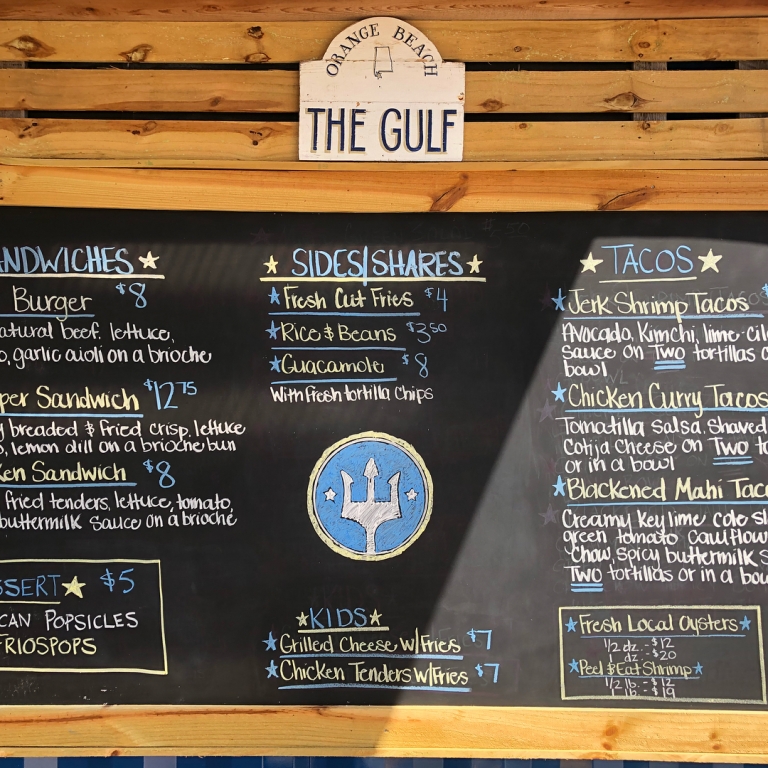 ORANGE BEACH
THE GULF
NDWICHES
Burger $8
atural beef, lettuce,
o, garlic aioli on a brioche
per Sandwich $12 75
y breaded & fried crisp, lettuce
s, lemon dill on a brioche bun
ken Sandwich $8
fried tenders, lettuce, tomato,
buttermilk sauce on a brioche
SSERT $5
CAN POPSICLES
FRIOSPOPS
SIDES/SHARES
Fresh Cut Fries $4
Rice & Beans $3 50
Guacamole $8
With fresh tortilla chips
KIDS
Grilled Cheese w/Fries $7
Chicken Tenders w/Fries $7
TACOS
Jerk Shrimp Tacos $
Avocado, Kimchi, lime-cil
Sauce on Two tortillas o
bowl
Chicken Curry Tacos
Tomatilla Salsa, Shaved
Cotija Cheese on Two to
or in a bowl
Blackened Mahi Taco
Creamy Key lime cole sl
green tomato cauliflow
chow, spicy buttermilk s
Two tortillas or in a bow
Fresh Local Oysters
1/2 dz. - $12
dz. - $20
Peel & Eat Shrimp
1/2 lb. - $12
1 lb. - $19